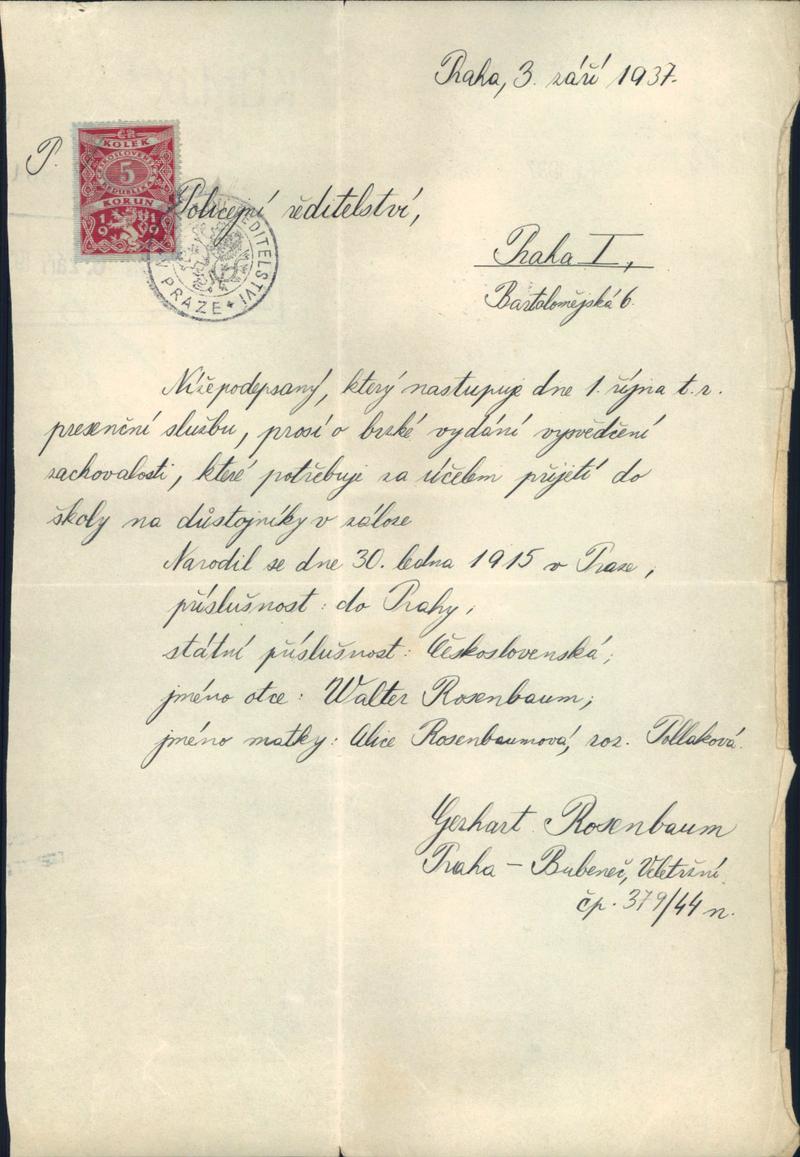 Praha, 3. září 1937.
P.
ČR
KOLEK
ČESKOSLOVENSKÁ
5
REPUBLIKA
KORUN
1919
Policejní ředitelství,
ŘEDITELSTVÍ
V PRAZE
Praha I,
Bartolomějská 6.
Nížepodepsaný, který nastupuje dne 1. října t. r.
presenční službu, prosí o brzké vydání vysvědčení
zachovalosti, které potřebuje za účelem přijetí do
školy na důstojníky v záloze
Narodil se dne 30. ledna 1915 v Praze,
příslušnost: do Prahy;
státní příslušnost: Československá;
jméno otce: Walter Rosenbaum;
jméno matky: Alice Rosenbaumová, roz. Pollaková.
Gerhart Rosenbaum
Praha – Bubeneč, Veletržní
čp. 379/44 n.